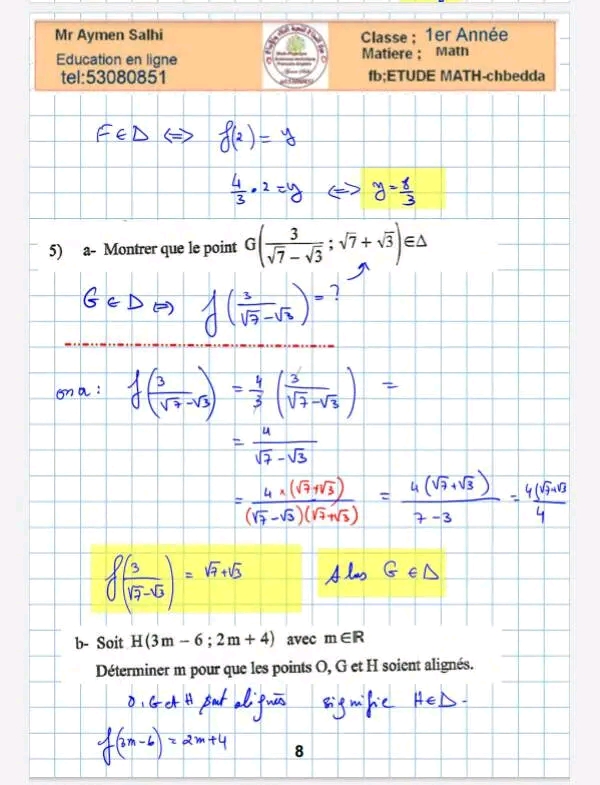 Mr Aymen Salhi
Education en ligne
tel:53080851
Classe ; 1er Année
Matiere ; Math
fb;ETUDE MATH-chbedda
F ∈ D ⟺ f(2) = y
4/3 • 2 = y ⟺ y = 8/3
5) a- Montrer que le point G(3/(√7 − √3) ; √7 + √3) ∈ Δ
G ∈ D ⟺ f(3/(√7 − √3)) = ?
on a : f(3/(√7 − √3)) = 4/3 (3/(√7 − √3)) =
= 4/(√7 − √3)
= 4 × (√7 + √3)/((√7 − √3)(√7 + √3)) = 4(√7 + √3)/(7 − 3) = 4(√7 + √3/4
f(3/(√7 − √3)) = √7 + √3 Alors G ∈ D
b- Soit H(3m − 6 ; 2m + 4) avec m ∈ ℝ
Déterminer m pour que les points O, G et H soient alignés.
O, G et H sont alignés signifie H ∈ D -
f(3m − 6) = 2m + 4
8